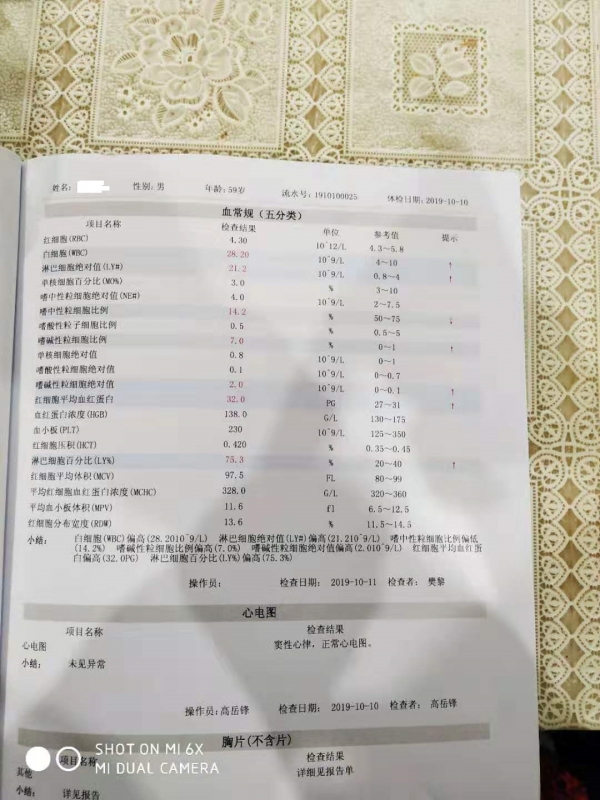 姓名: 性别: 男 年龄: 59岁 流水号: 1910100025 体检日期: 2019-10-10
血常规（五分类）
项目名称 检查结果 单位 参考值 提示
红细胞(RBC) 4.30 10^12/L 4.3~5.8
白细胞(WBC) 28.20 10^9/L 4~10 ↑
淋巴细胞绝对值(LY#) 21.2 10^9/L 0.8~4 ↑
单核细胞百分比(MO%) 3.0 % 3~10
嗜中性粒细胞绝对值(NE#) 4.0 10^9/L 2~7.5
嗜中性粒细胞比例 14.2 % 50~75 ↓
嗜酸性粒子细胞比例 0.5 % 0.5~5
嗜碱性粒细胞比例 7.0 % 0~1 ↑
单核细胞绝对值 0.8 10^9/L 0~1
嗜酸性粒细胞绝对值 0.1 10^9/L 0~0.7
嗜碱性粒细胞绝对值 2.0 10^9/L 0~0.1 ↑
红细胞平均血红蛋白 32.0 PG 27~31 ↑
血红蛋白浓度(HGB) 138.0 G/L 130~175
血小板(PLT) 230 10^9/L 125~350
红细胞压积(HCT) 0.420 % 0.35~0.45
淋巴细胞百分比(LY%) 75.3 % 20~40 ↑
红细胞平均体积(MCV) 97.5 FL 80~99
平均红细胞血红蛋白浓度(MCHC) 328.0 G/L 320~360
平均血小板体积(MPV) 11.6 fl 6.5~12.5
红细胞分布宽度(RDW) 13.6 % 11.5~14.5
小结: 白细胞(WBC)偏高(28.2010^9/L) 淋巴细胞绝对值(LY#)偏高(21.210^9/L) 嗜中性粒细胞比例偏低
(14.2%) 嗜碱性粒细胞比例偏高(7.0%) 嗜碱性粒细胞绝对值偏高(2.010^9/L) 红细胞平均血红蛋
白偏高(32.0PG) 淋巴细胞百分比(LY%)偏高(75.3%)
操作员: 检查日期: 2019-10-11 检查者: 樊黎
心电图
项目名称 检查结果
心电图 窦性心律，正常心电图。
小结: 未见异常
操作员: 高岳锋 检查日期: 2019-10-10 检查者: 高岳锋
胸片(不含片)
项目名称 检查结果
其他 详细见报告单
小结: 详见报告
SHOT ON MI 6X
MI DUAL CAMERA